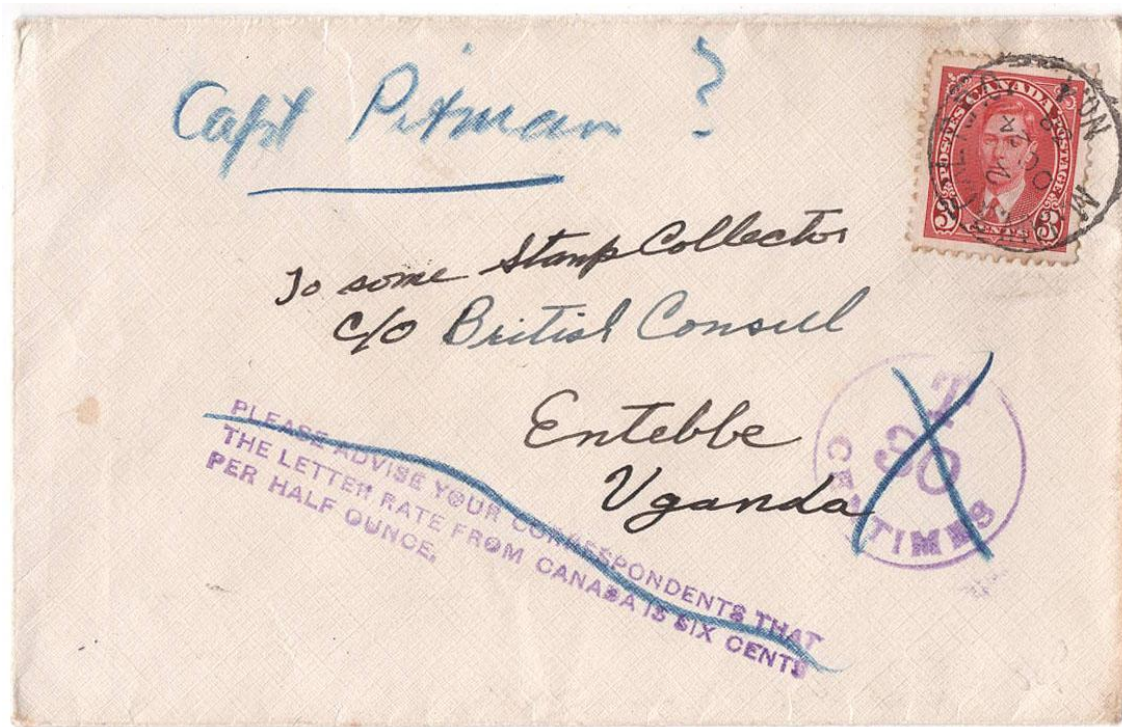 Capt Pitman ?
POSTES CANADA POSTAGE
3 CENTS 3
To some Stamp Collector
c/o British Consul
Entebbe
Uganda
T
30
CENTIMES
PLEASE ADVISE YOUR CORRESPONDENTS THAT
THE LETTER RATE FROM CANADA IS SIX CENTS
PER HALF OUNCE.